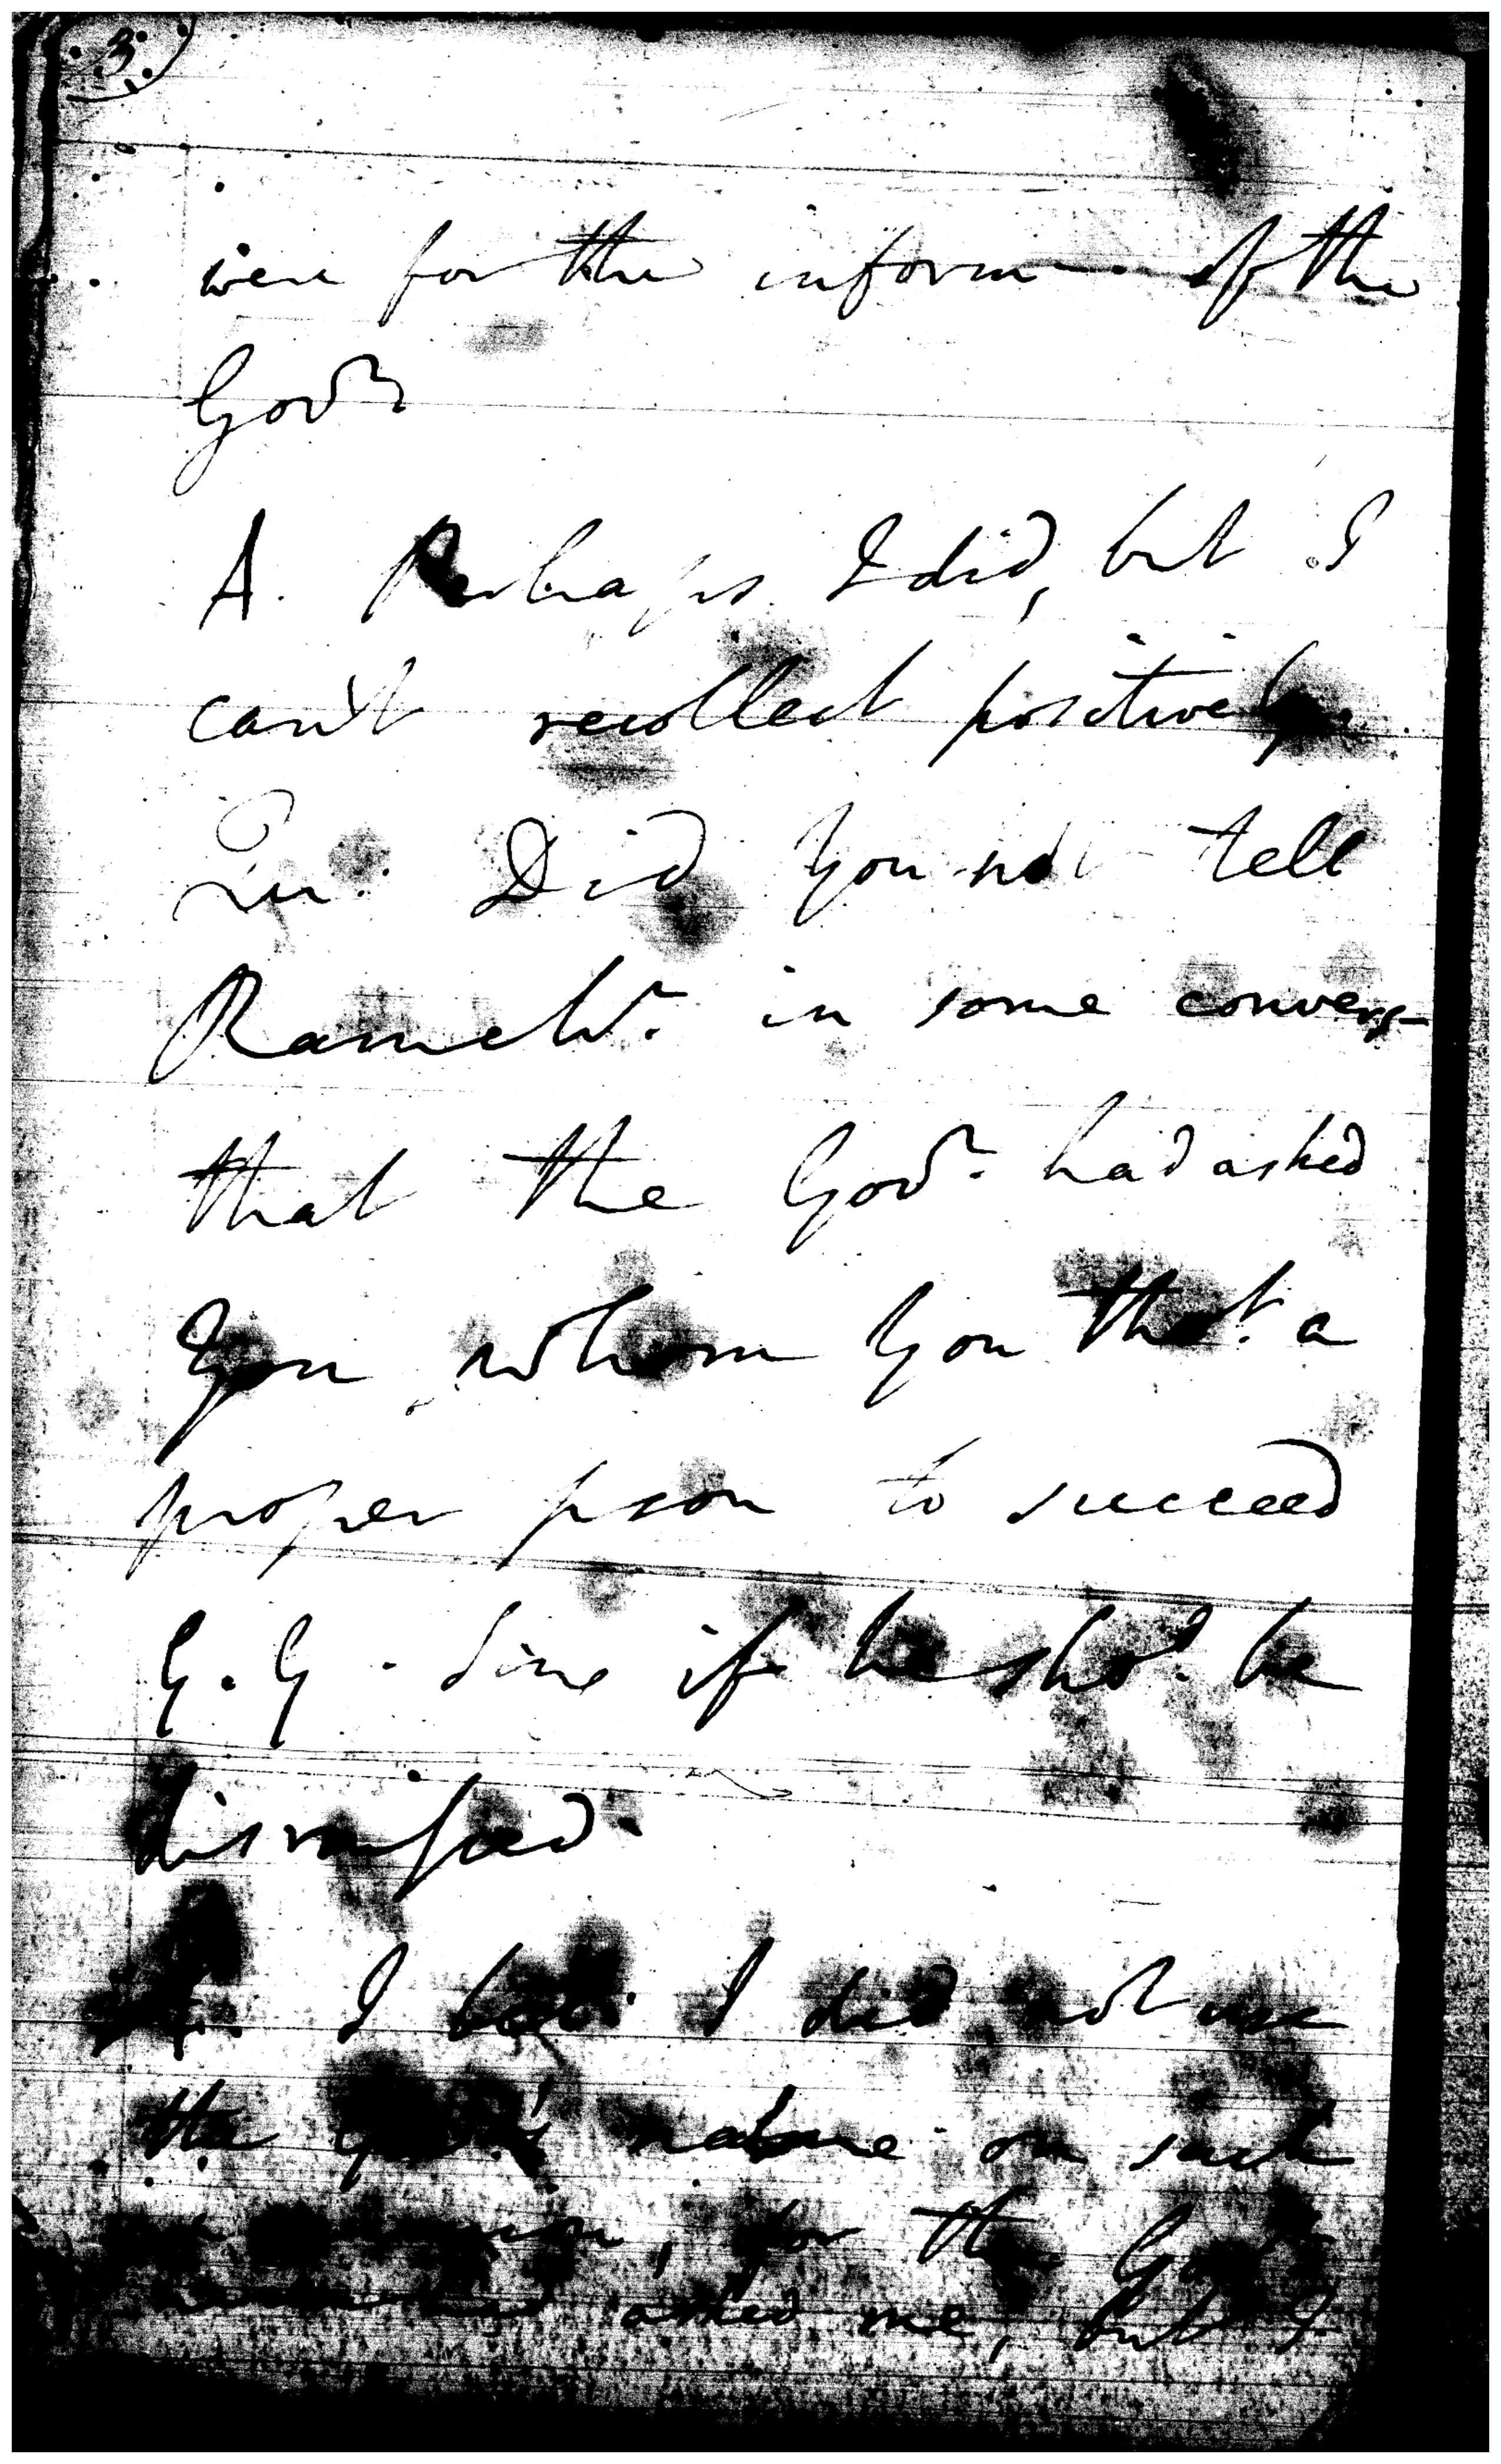 3
were for the inform— of the
Govr
A. Perhaps I did, but I
can't recollect positively.
Qu. Did you not tell
Ramchr. in some convers—
that the Govr. had asked
you whom you thot. a
proper pson to succeed
G. G. Sing if he shod. be
dismissed.
A. I bel. I did not use
the Govr's name on such
for the Govr
asked me, but I